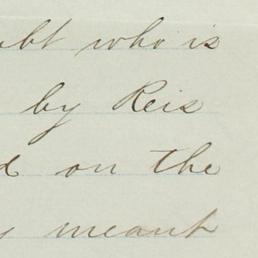 ubt who is
by Reis
d on the
y meant